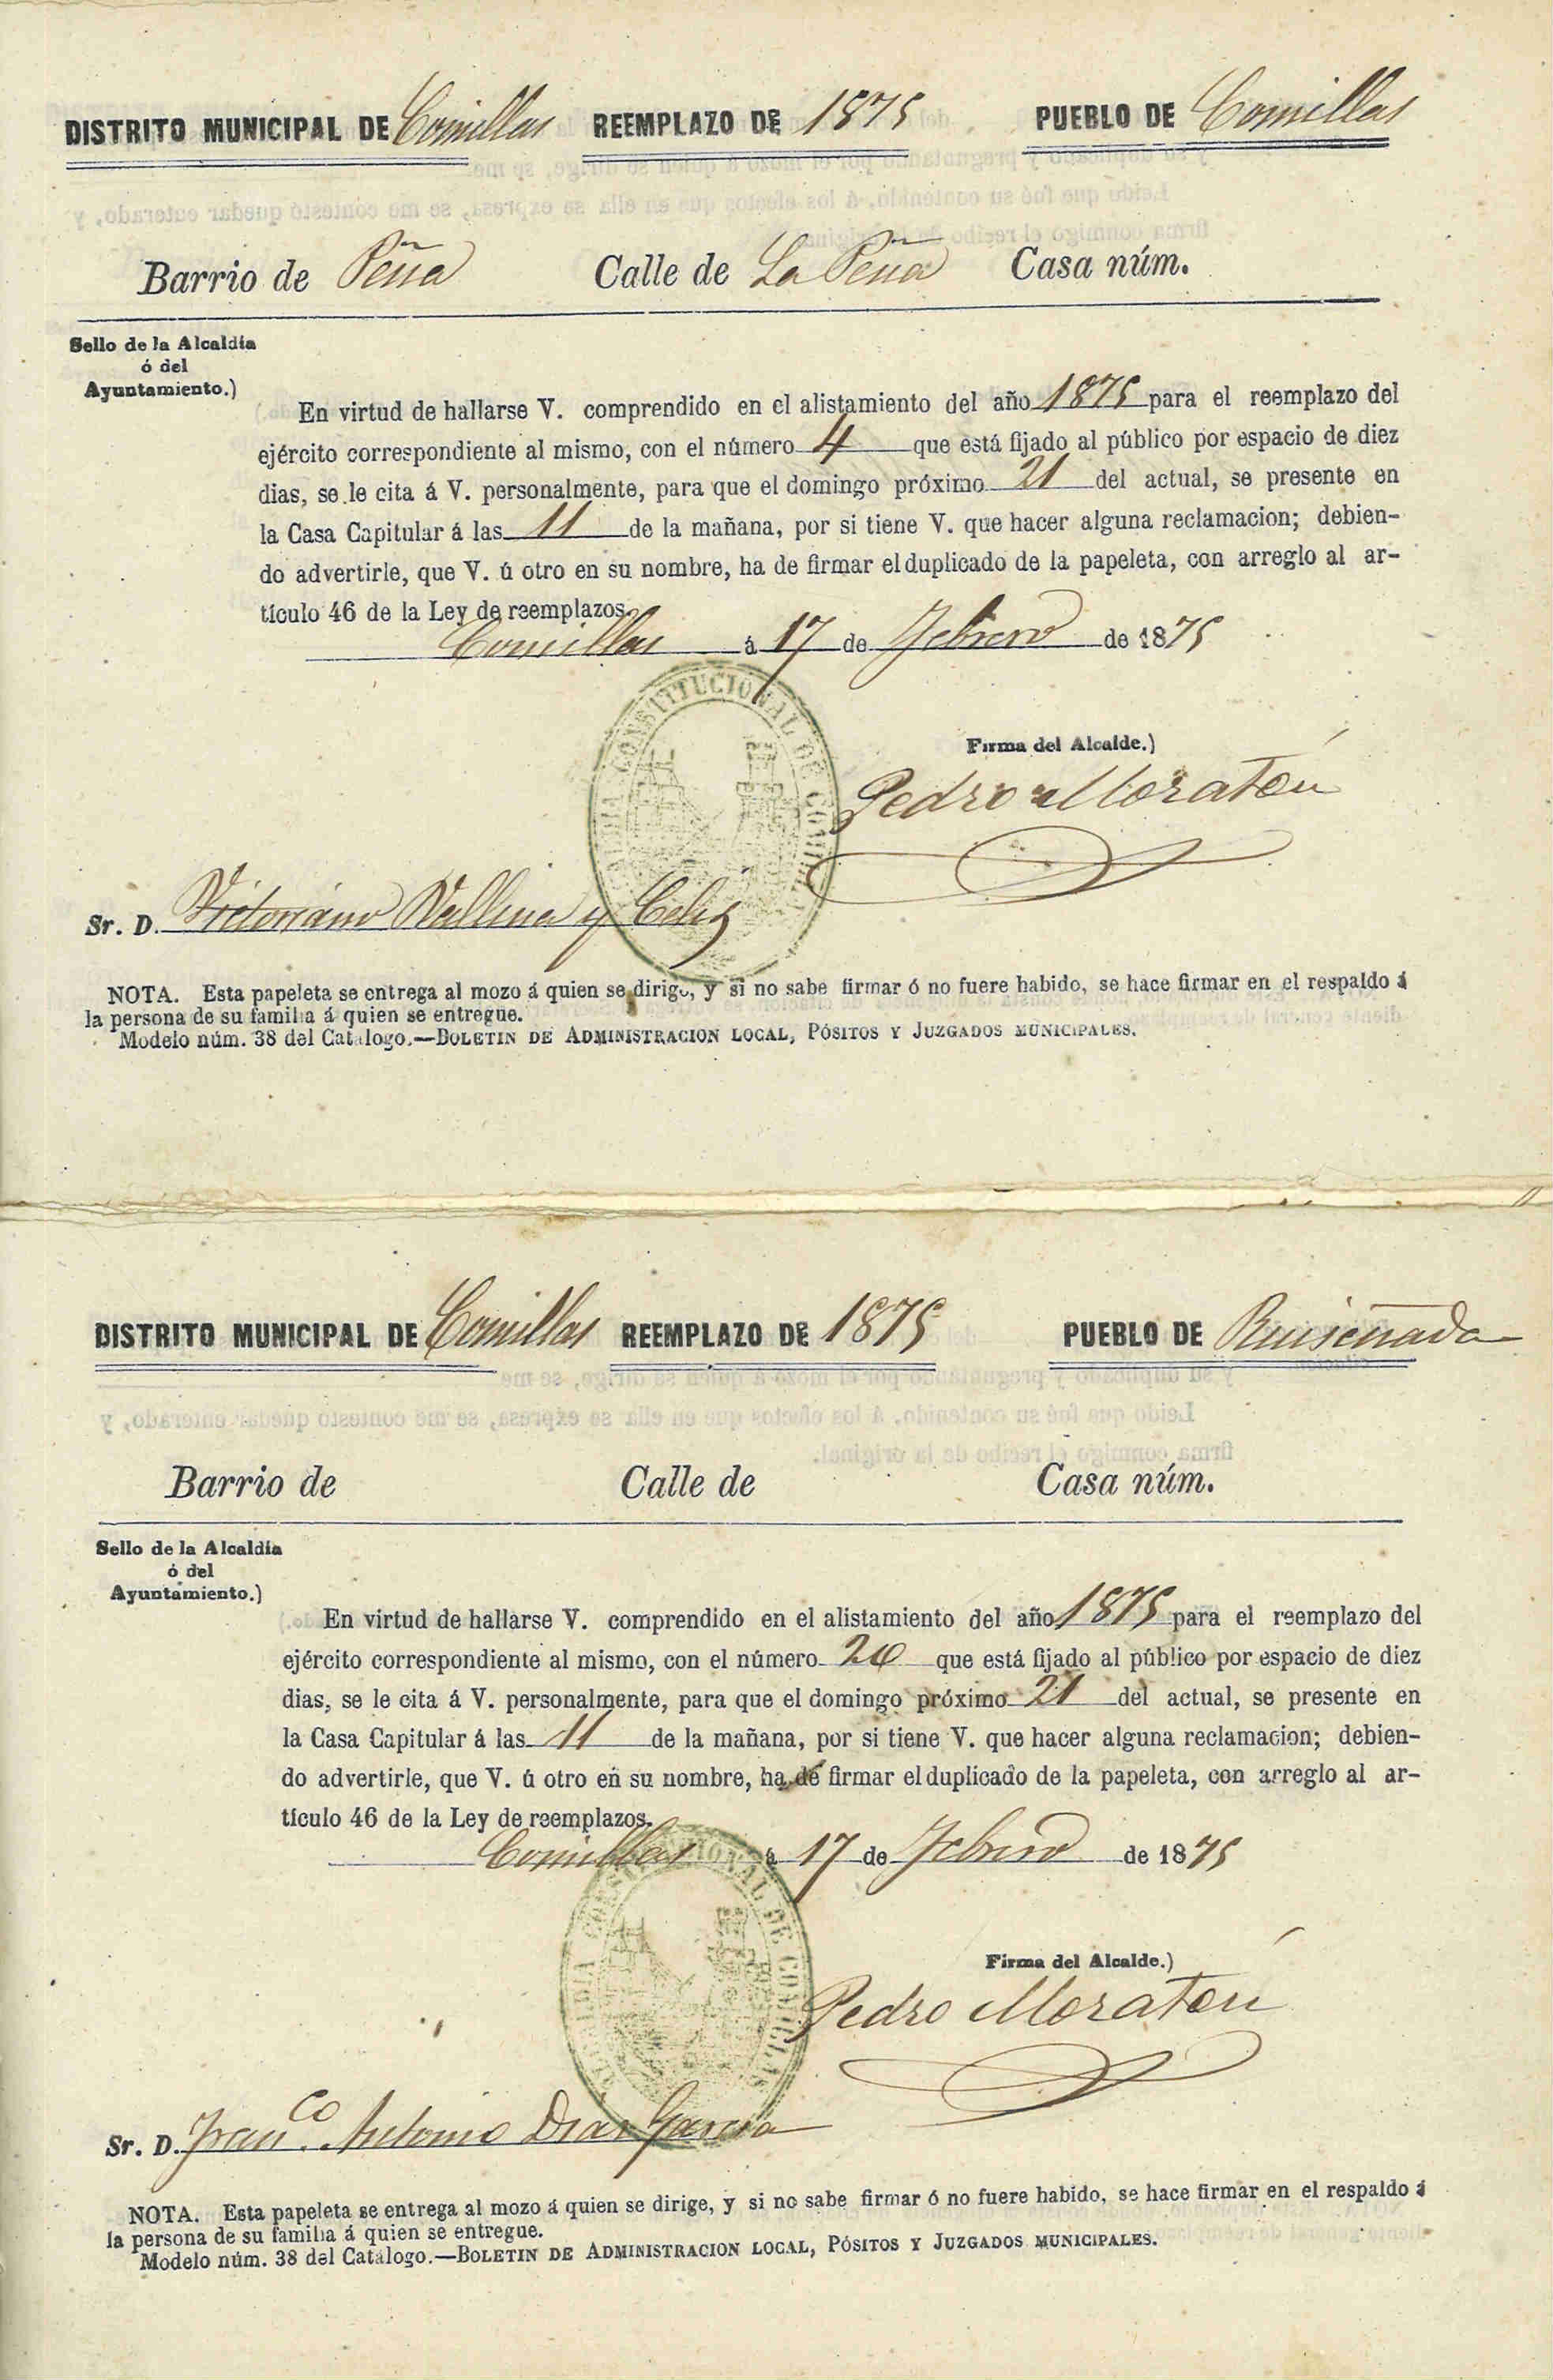 DISTRITO MUNICIPAL DE Comillas REEMPLAZO DE 1875 PUEBLO DE Comillas
Barrio de Peña Calle de La Peña Casa núm.
Sello de la Alcaldía
ó del
Ayuntamiento.)
En virtud de hallarse V. comprendido en el alistamiento del año 1875 para el reemplazo del
ejército correspondiente al mismo, con el número 4 que está fijado al público por espacio de diez
dias, se le cita á V. personalmente, para que el domingo próximo 21 del actual, se presente en
la Casa Capitular á las 11 de la mañana, por si tiene V. que hacer alguna reclamacion; debien-
do advertirle, que V. ú otro en su nombre, ha de firmar el duplicado de la papeleta, con arreglo al ar-
tículo 46 de la Ley de reemplazos.
Comillas á 17 de Febrero de 1875
CONSTITUCIONAL DE
Firma del Alcalde.)
Pedro Moratón
Sr. D. Victoriano Vallina y Celis
NOTA. Esta papeleta se entrega al mozo á quien se dirige, y si no sabe firmar ó no fuere habido, se hace firmar en el respaldo á
la persona de su familia á quien se entregue.
Modelo núm. 38 del Catálogo.—BOLETIN DE ADMINISTRACION LOCAL, PÓSITOS Y JUZGADOS MUNICIPALES.
DISTRITO MUNICIPAL DE Comillas REEMPLAZO DE 1875 PUEBLO DE Ruiseñada
Barrio de Calle de Casa núm.
Sello de la Alcaldía
ó del
Ayuntamiento.)
En virtud de hallarse V. comprendido en el alistamiento del año 1875 para el reemplazo del
ejército correspondiente al mismo, con el número 20 que está fijado al público por espacio de diez
dias, se le cita á V. personalmente, para que el domingo próximo 21 del actual, se presente en
la Casa Capitular á las 11 de la mañana, por si tiene V. que hacer alguna reclamacion; debien-
do advertirle, que V. ú otro en su nombre, ha de firmar el duplicado de la papeleta, con arreglo al ar-
tículo 46 de la Ley de reemplazos.
Comillas á 17 de Febrero de 1875
ALCALDIA CONSTITUCIONAL DE COMILLAS
Firma del Alcalde.)
Pedro Moratón
Sr. D. Franco. Antonio Diaz Garcia
NOTA. Esta papeleta se entrega al mozo á quien se dirige, y si no sabe firmar ó no fuere habido, se hace firmar en el respaldo á
la persona de su familia á quien se entregue.
Modelo núm. 38 del Catálogo.—BOLETIN DE ADMINISTRACION LOCAL, PÓSITOS Y JUZGADOS MUNICIPALES.